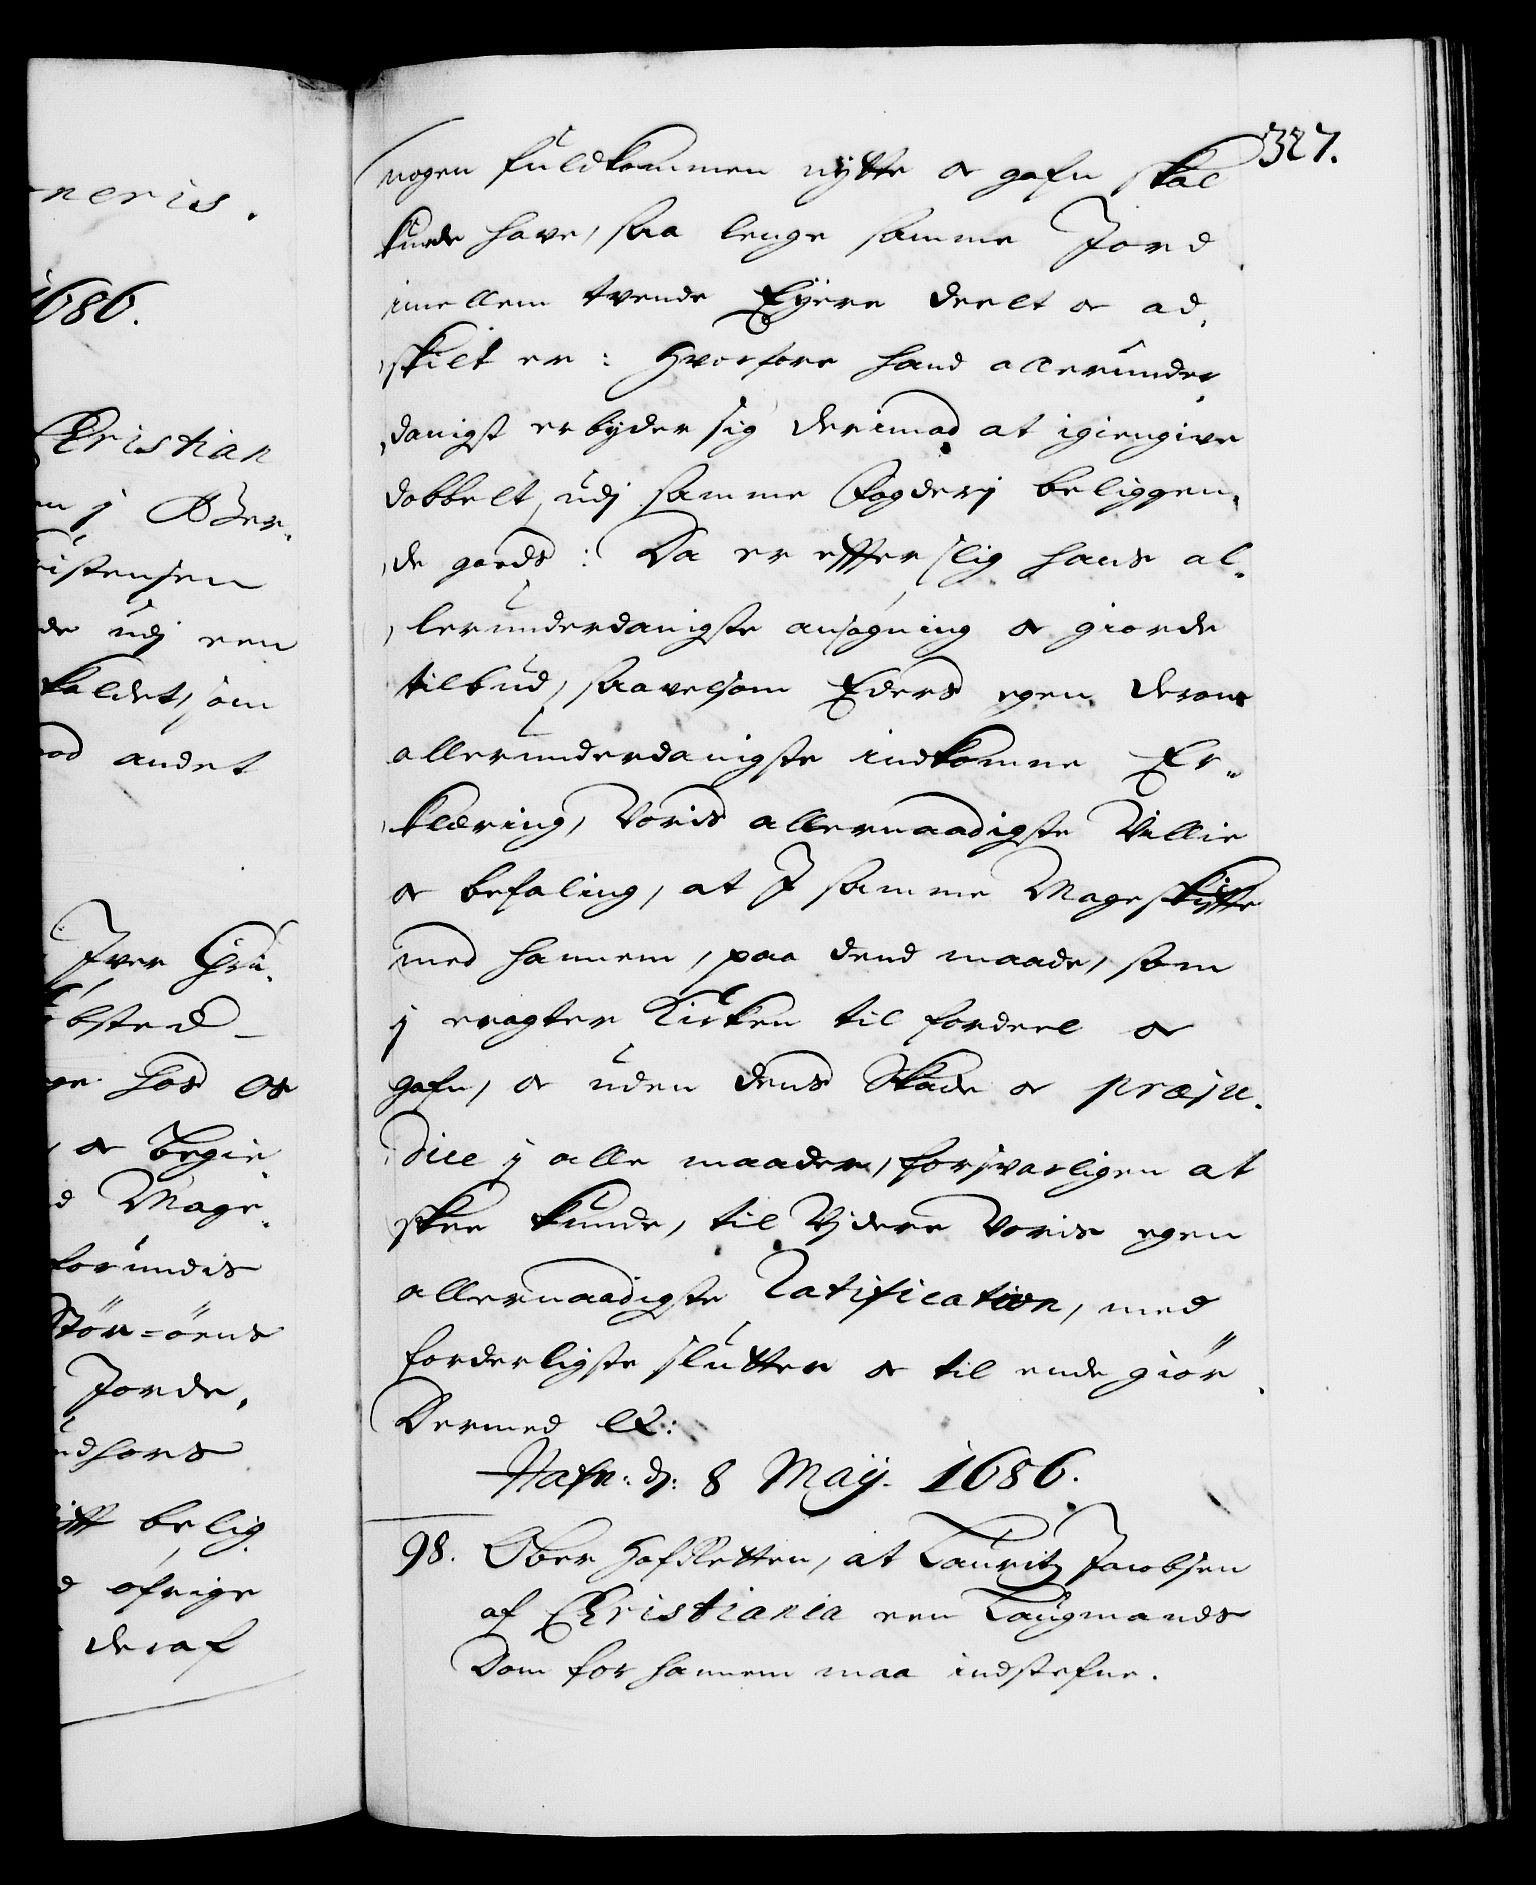 neris.
1686.
Christian
en j Ager,
ristensen
de udj een
kaldet, som
od andet
Jver Chri,
bsted
ge hos os
, oc begie,
d Mage,
forundis
Stör-öens
Jorde,
udhors
belig
d öfrige
deraf
327.
nogen fuldkommen nytte oc gafn skal
kunde have, saa lenge samme Jord
imellem tvende Eyere deelt oc ad,
skilt er: Hvorfore hand allerunder,
danigst erbyder sig derimod at igiengive
dobbelt, udj samme Fogderj beliggen,
de gods: Da er effter slig hans al,
lerunderdanigste ansøgning oc giorde
tilbud, saavelsom Eders egen derom
allerunderdanigste indkomne Er,
klæring, Voris allernaadigste Villie
oc befaling, at J samme Mageskiffte
med hannem, paa dend maade, som
j eragter Kirken til fordeel oc
gafn, oc uden dens Skade oc præju,
dice j alle maader, forsvarligen at
skee kunde, til Vjdere Voris egen
allernaadigste Ratification, med
forderligste slutter oc til ende giör.
Dermed &c:
Hafn: d: 8 Maij. 1686.
98. Ober HofRetten, at Lauritz Jacobsen
af Christiania een Laugmands
Dom for hannem maa indstefne.